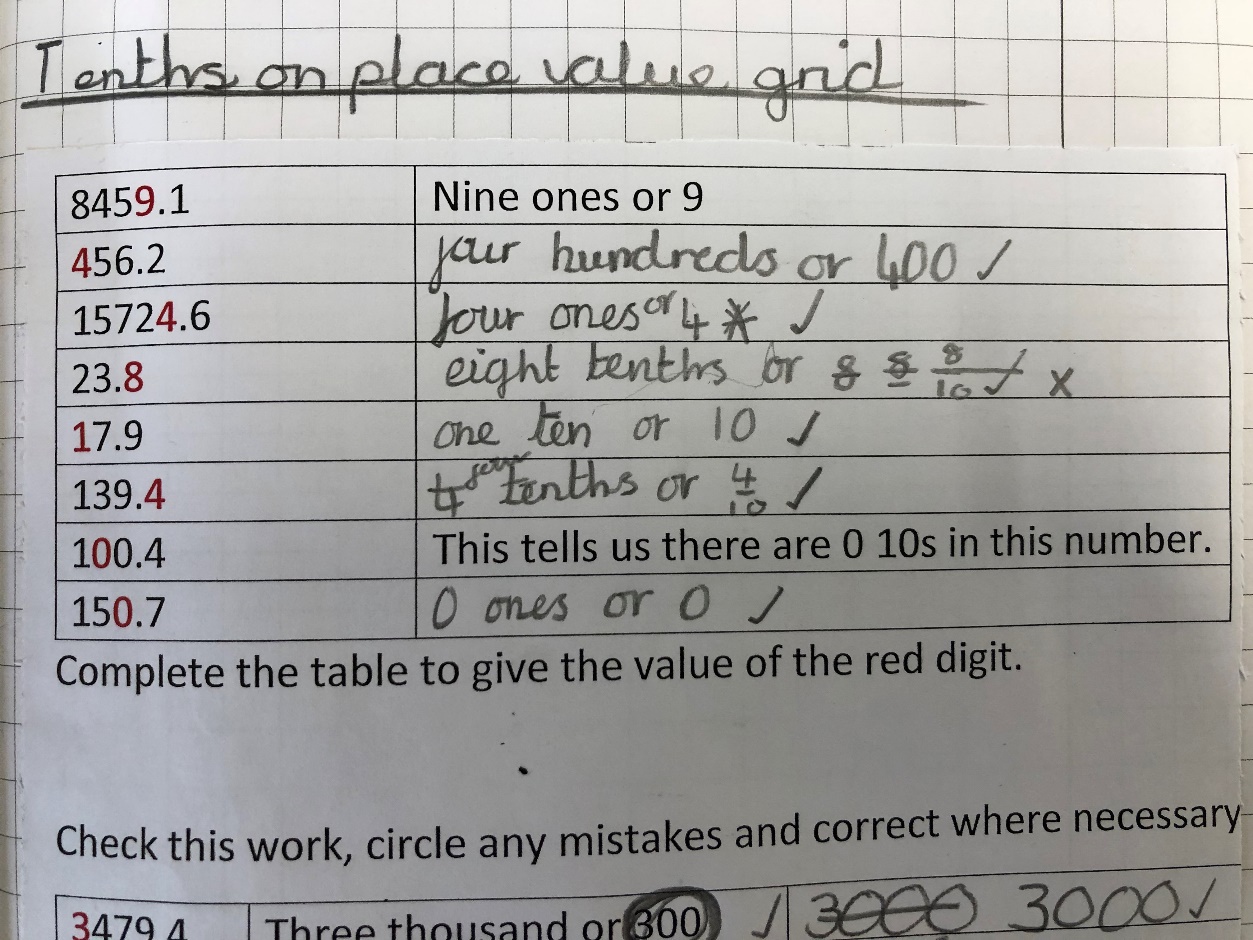 Tenths on place value grid
8459.1 Nine ones or 9
456.2 four hundreds or 400 ✓
15724.6 four ones or 4 ✓
23.8 eight tenths or 8 8 8/10 ✓ x
17.9 one ten or 10 ✓
139.4 4 four tenths or 4/10 ✓
100.4 This tells us there are 0 10s in this number.
150.7 0 ones or 0 ✓
Complete the table to give the value of the red digit.
Check this work, circle any mistakes and correct where necessary
3479.4 Three thousand or 300 ✓ 3000 3000 ✓